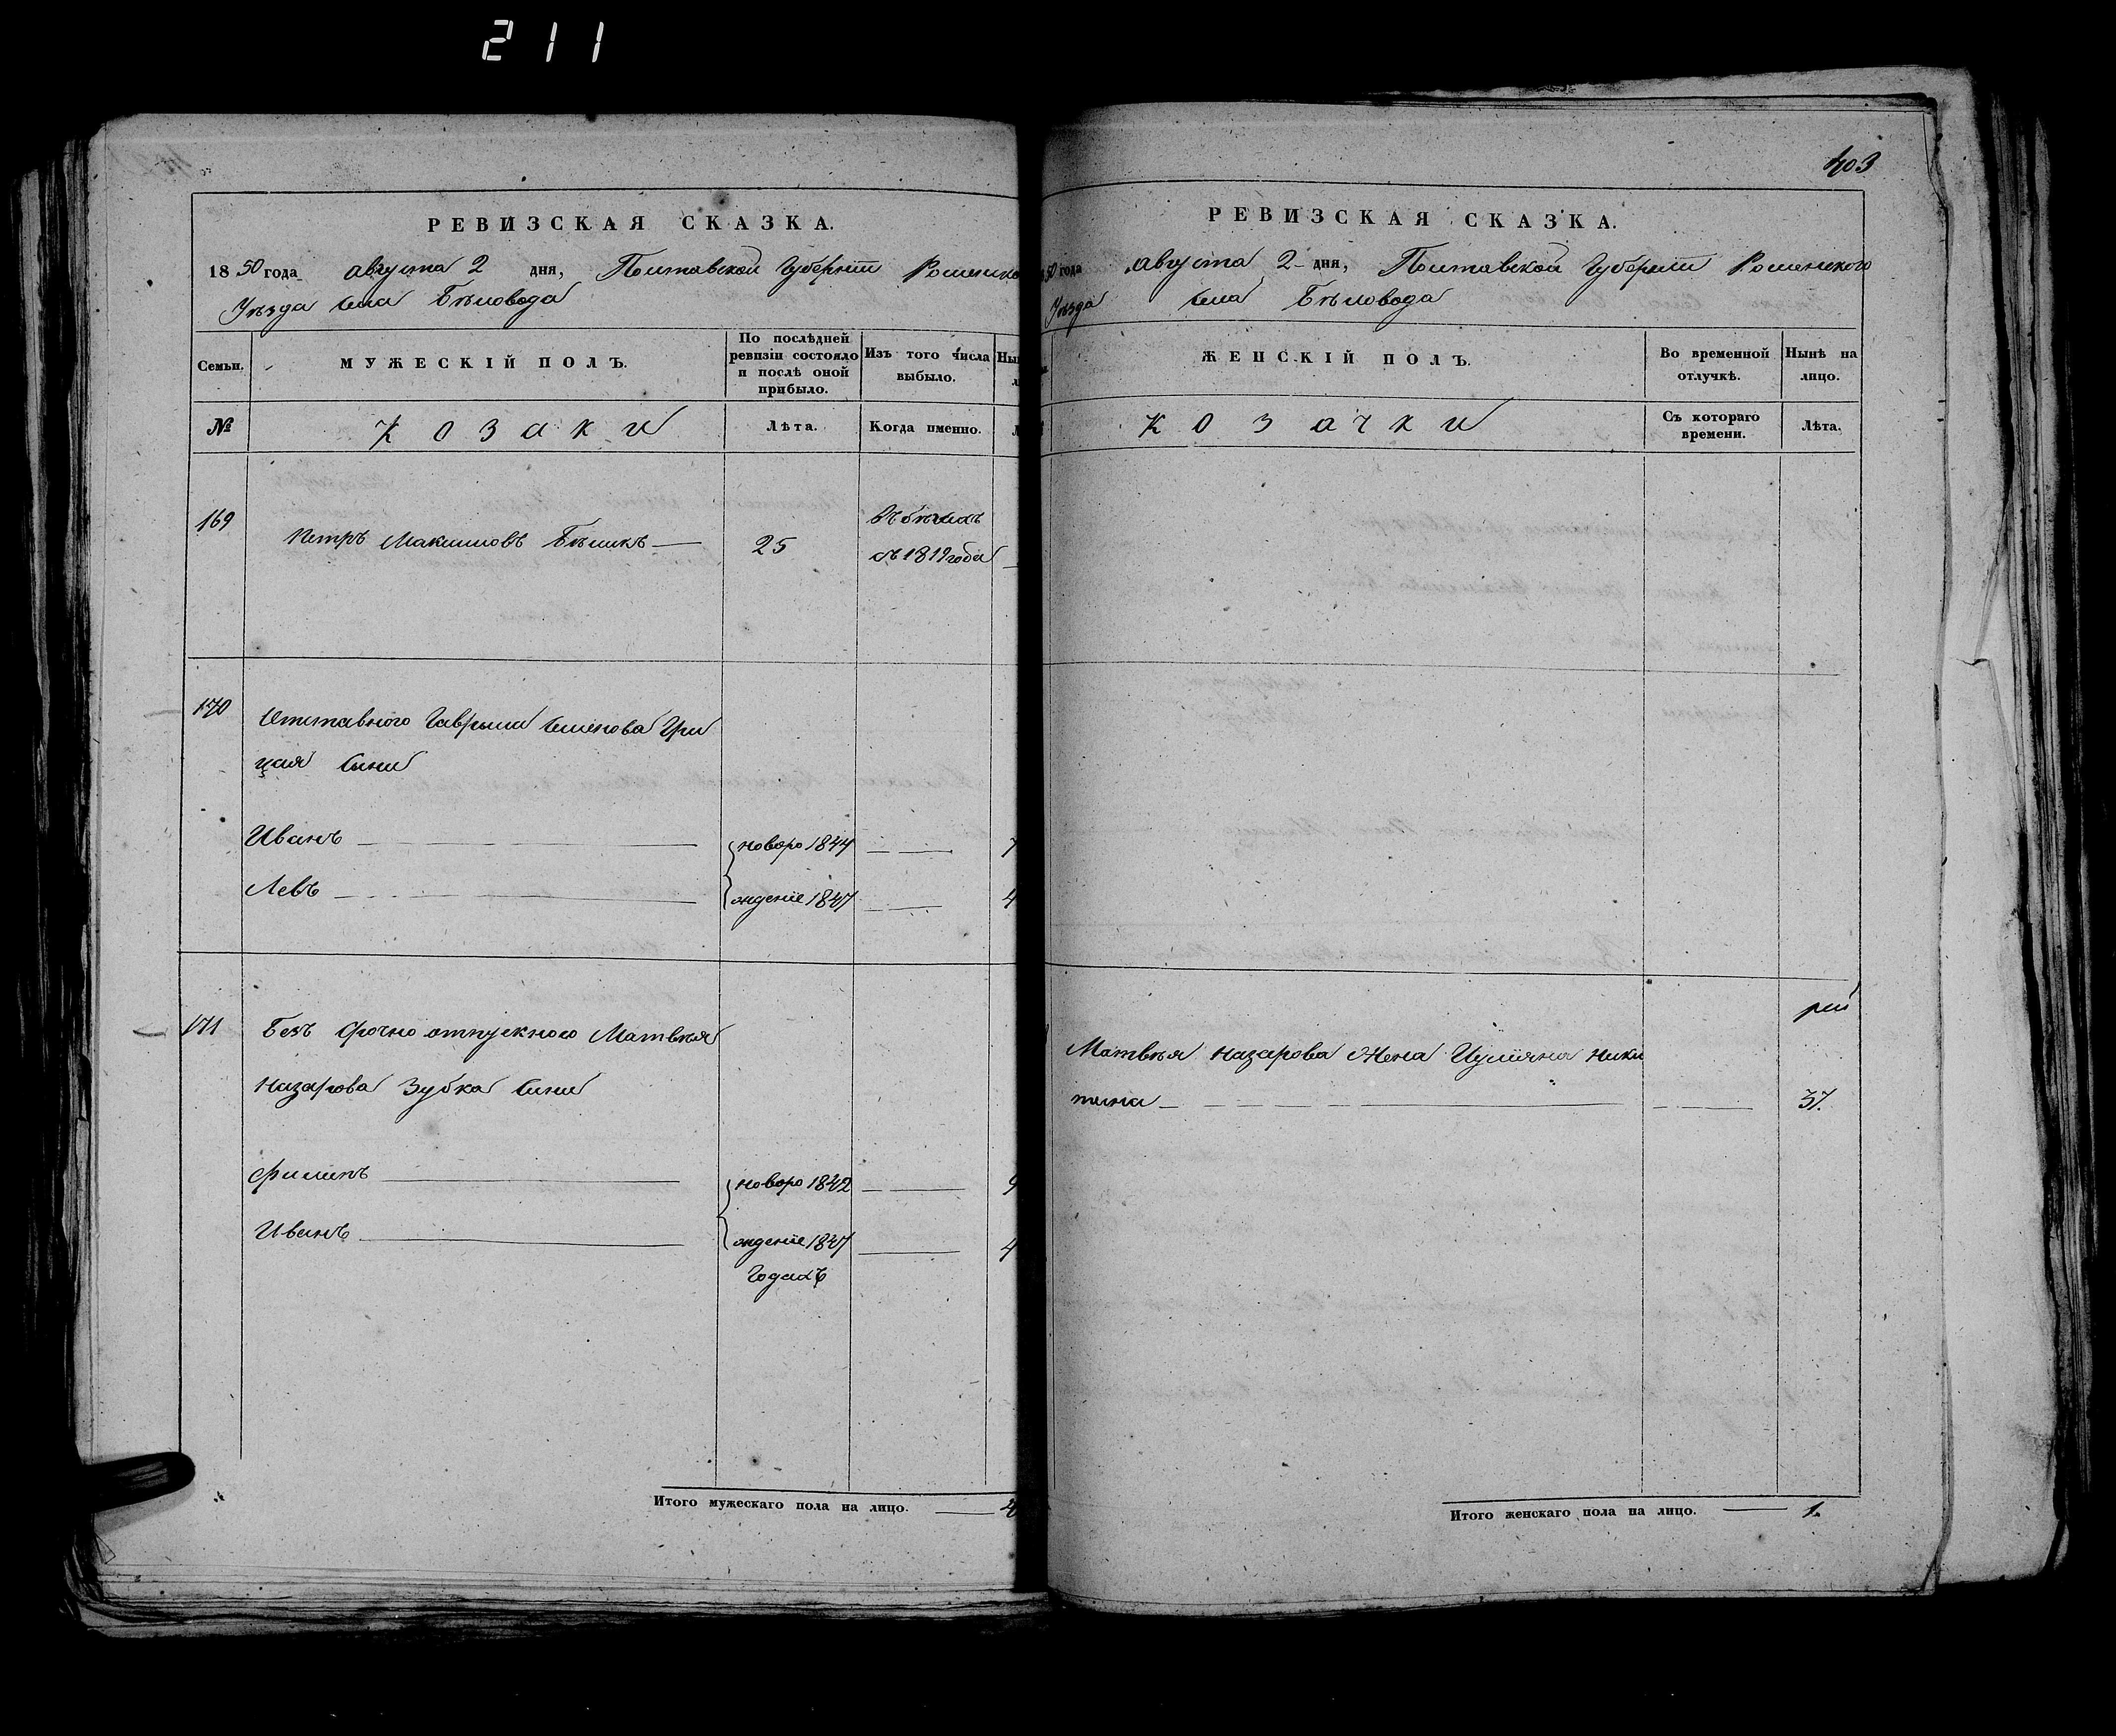 211
РЕВИЗСКАЯ СКАЗКА.
1850 года августа 2 дня, Полтавской Губерніи Роменско
Уѣзда Села Бѣловода
Семьи.
МУЖЕСКІЙ ПОЛЪ.
По послѣдней
ревизіи состояло
и послѣ оной
прибыло.
Изъ того числа
выбыло.
Ны
№
Козаки
Лѣта.
Когда именно.
169
Петръ Максимовъ
25
въ бѣгахъ
съ 1819 года
170
Гаврыла Семенова Гри
цая Сыны
Иванъ
новоро 1844
7
Левъ
ждение 1847
4
171
Безъ срочно отпускного Матвѣя
Назарова Зубка Сыны
Филипъ
новоро 1842
9
Иванъ
ждение 1847
4
Годахъ
Итого мужескаго пола на лицо. 4
403
РЕВИЗСКАЯ СКАЗКА.
50 года августа 2 дня, Полтавской Губерніи Роменского
Уѣзда Села Бѣловода
ЖЕНСКІЙ ПОЛЪ.
Во временной
отлучкѣ.
Нынѣ на
лицо.
Козачки
Съ котораго
времени.
Лѣта.
Матвѣя Назарова Жена Иулiяна Ники
тина
37.
Итого женскаго пола на лицо. 1.